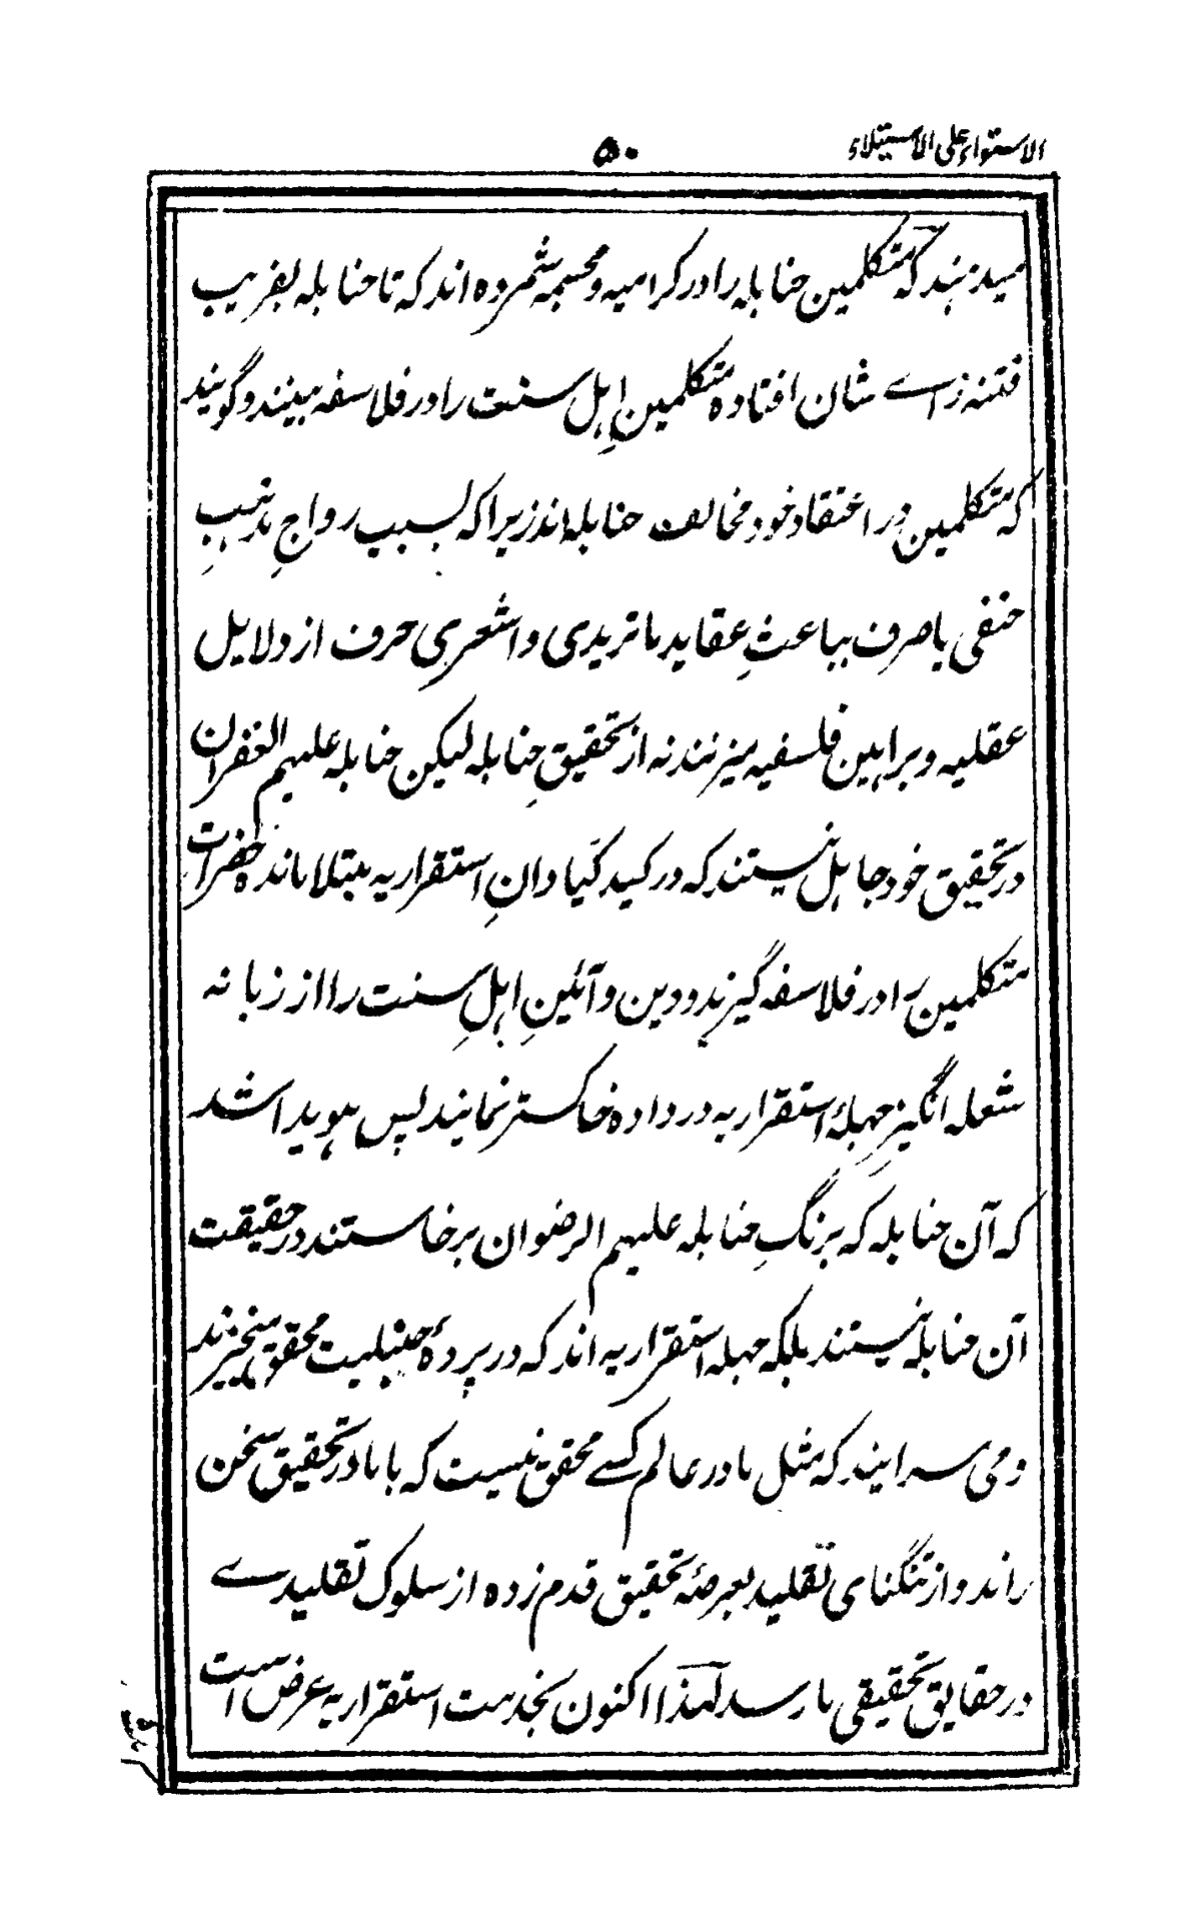 الاستواء علی الاستیلاء
۵۰
میدہند کہ متکلمین حنابلہ را در کرامیہ و مجسمہ شمردہ اند کہ تا حنابلہ بفریب
فتنہ زاے شان افتادہ متکلمینِ اہل سنت را در فلاسفہ بینند و گویند
کہ متکلمین در اعتقاد خود مخالف حنابلہ اند زیرا کہ بسبب رواجِ مذہبِ
حنفی یا صرف بباعثِ عقاید ماتریدی و اشعری حرف از دلایل
عقلیہ و براہین فلسفیہ میزنند نہ از تحقیقِ حنابلہ لیکن حنابلہ علیہم الغفران
در تحقیق خود جاہل نیستند کہ در کید کیادانِ استقراریہ مبتلا ماندہ حضرات
متکلمین را در فلاسفہ گیرند و دین و آئینِ اہلِ سنت را از زبانہ
شعلہ انگیز جہلۂ استقراریہ در دادہ خاکستر نمایند پس ہویدا شد
کہ آن حنابلہ کہ برنگِ حنابلہ علیہم الرضوان برخاستند در حقیقت
آن حنابلہ نیستند بلکہ جہلہ استقراریہ اند کہ در پردۂ حنبلیت محقق میخیزند
و می سرایند کہ مثل ما در عالم کسے محقق نیست کہ با ما در تحقیق سخن
راند و از تنگنای تقلید بعرصۂ تحقیق قدم زدہ از سلوک تقلیدے
در حقایق تحقیقی ما رسد لہٰذا اکنون بخدمت استقراریہ عرض است